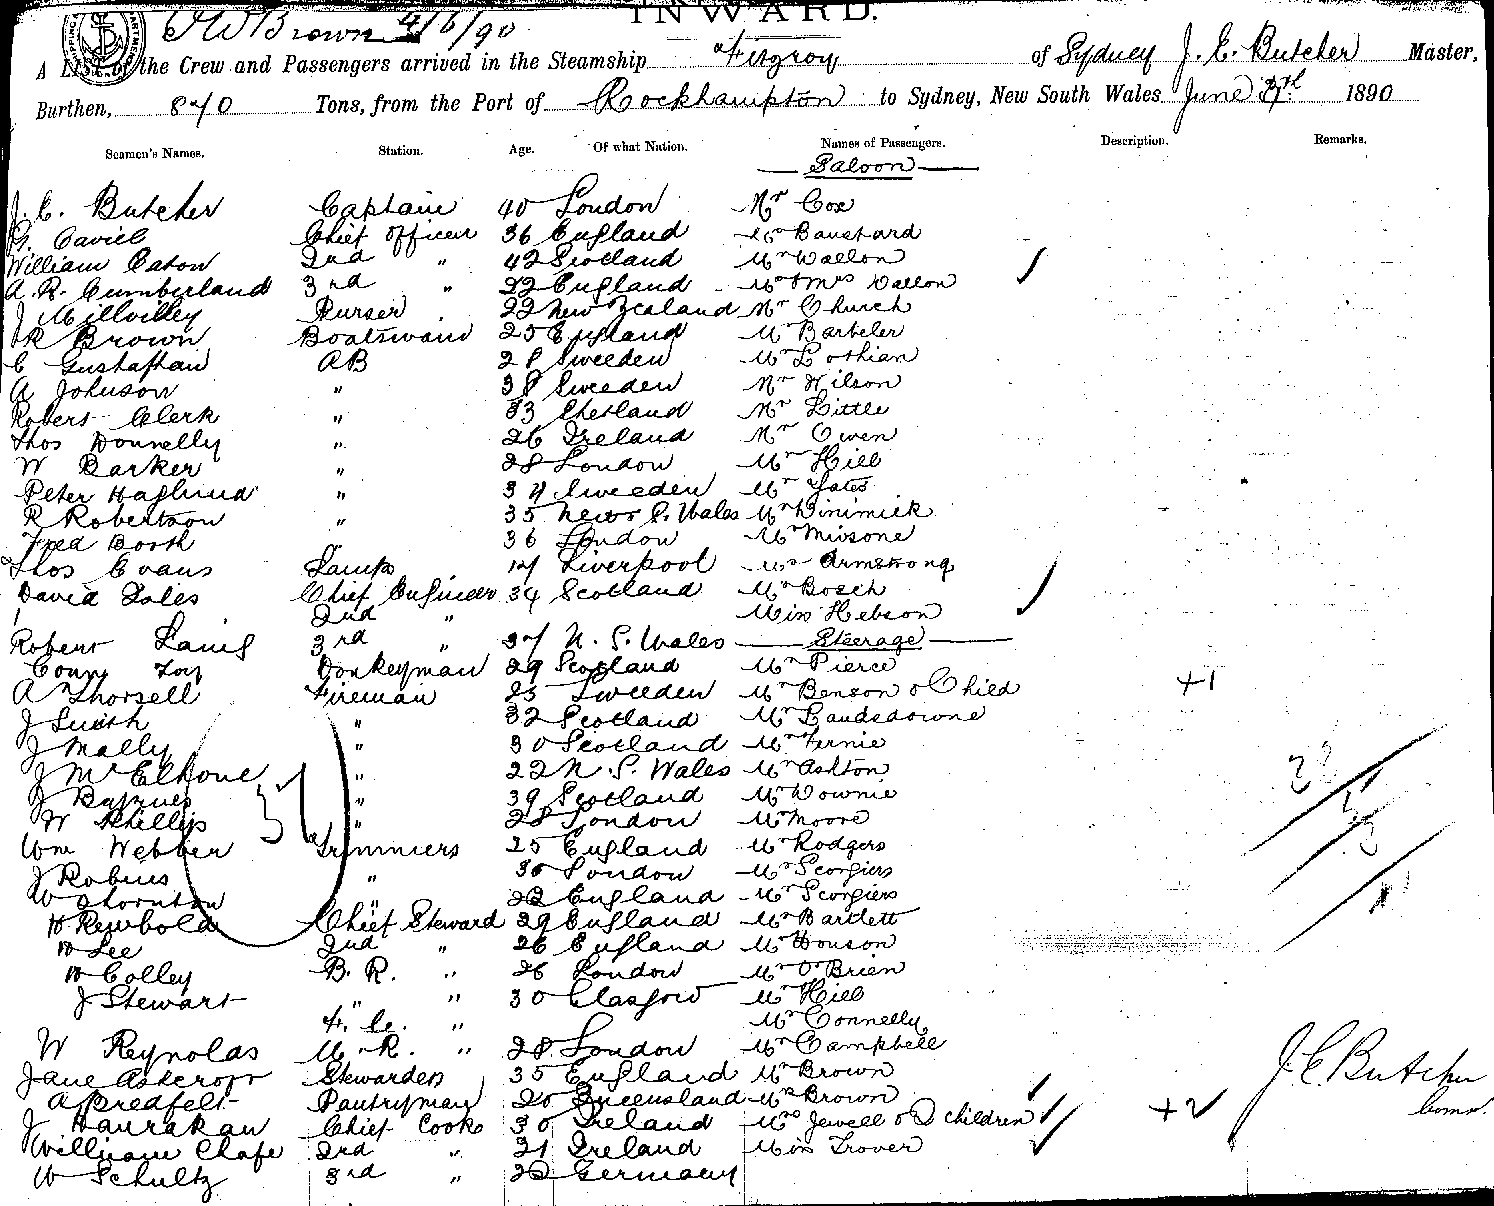 INWARD.
HW Brown 4/6/90
A List of the Crew and Passengers arrived in the Steamship Fitzroy of Sydney J. E. Butcher Master,
Burthen, 840 Tons, from the Port of Rockhampton to Sydney, New South Wales June 1890
Seamen's Names. Station. Age. Of what Nation. Names of Passengers. Description. Remarks.
Saloon
J. C. Butcher Captain 40 London Mr Cox
Chief Officer 36 England Mr Banshard
William Eaton 2nd " 42 Scotland Mr Wallon
A. R. Cumberland 3rd " 22 England Mr & Mrs Dallon
J Purser 22 New Zealand Mr Church
R Brown Boatswain 25 England Mr
C Gustafhan AB 28 Sweeden Mr Lothian
A Johnson " 38 Sweeden Mr Wilson
Robert Clerk " 33 Shetland Mr Little
Thos Donnelly " 26 Ireland Mr Owen
W Barker " 28 London Mr Hill
Peter Haglund " 34 Sweeden Mr Yates
R Robertson " 35 New S. Wales Mr
Fred Booth " 36 London Mr
Thos Evans Lamps 17 Liverpool Mr Armstrong
David Chief Engineer 34 Scotland Mr Bosch
2nd " Miss Hebson
Robert Laing 3rd " 37 N. S. Wales Steerage
Conny Foy Donkeyman 29 Scotland Mr Pierce
A Thorsell Fireman 25 Sweeden Mr Benson & Child +1
J Smith " 32 Scotland Mr Landsdowne
J Mally " 30 Scotland Mr Fernie
J McElhone " 22 N. S. Wales Mr Ashton
J Barnes " 39 Scotland Mr Downie
W Phillips " 28 London Mr Moore
Wm Webber Trimmers 25 England Mr Rodgers
J Robins " 30 London Mr Scorgiers
W Thornton " 22 England Mr Scorgiers
H Rewbold Chief Steward 29 England Mr Bartlett
H Lee 2nd " 26 England Mr Honson
H Colley B. R. " 26 London Mr O'Brien
J Stewart " " 30 Glasgow Mr Hill
F. C. " Mr Connelly
W Reynolds M. R. " 28 London Mr Campbell
Jane Ashcroft Stewardess 35 England Mr Brown
A Bredfelt Pantryman 20 Queensland Mrs Brown
J Hanrahan Chief Cook 30 Ireland Mrs Jewell & 2 children +2
William Chafe 2nd " 21 Ireland Miss Trover
W Schultz 3rd " 22 Germany
J. C. Butcher
Comr.